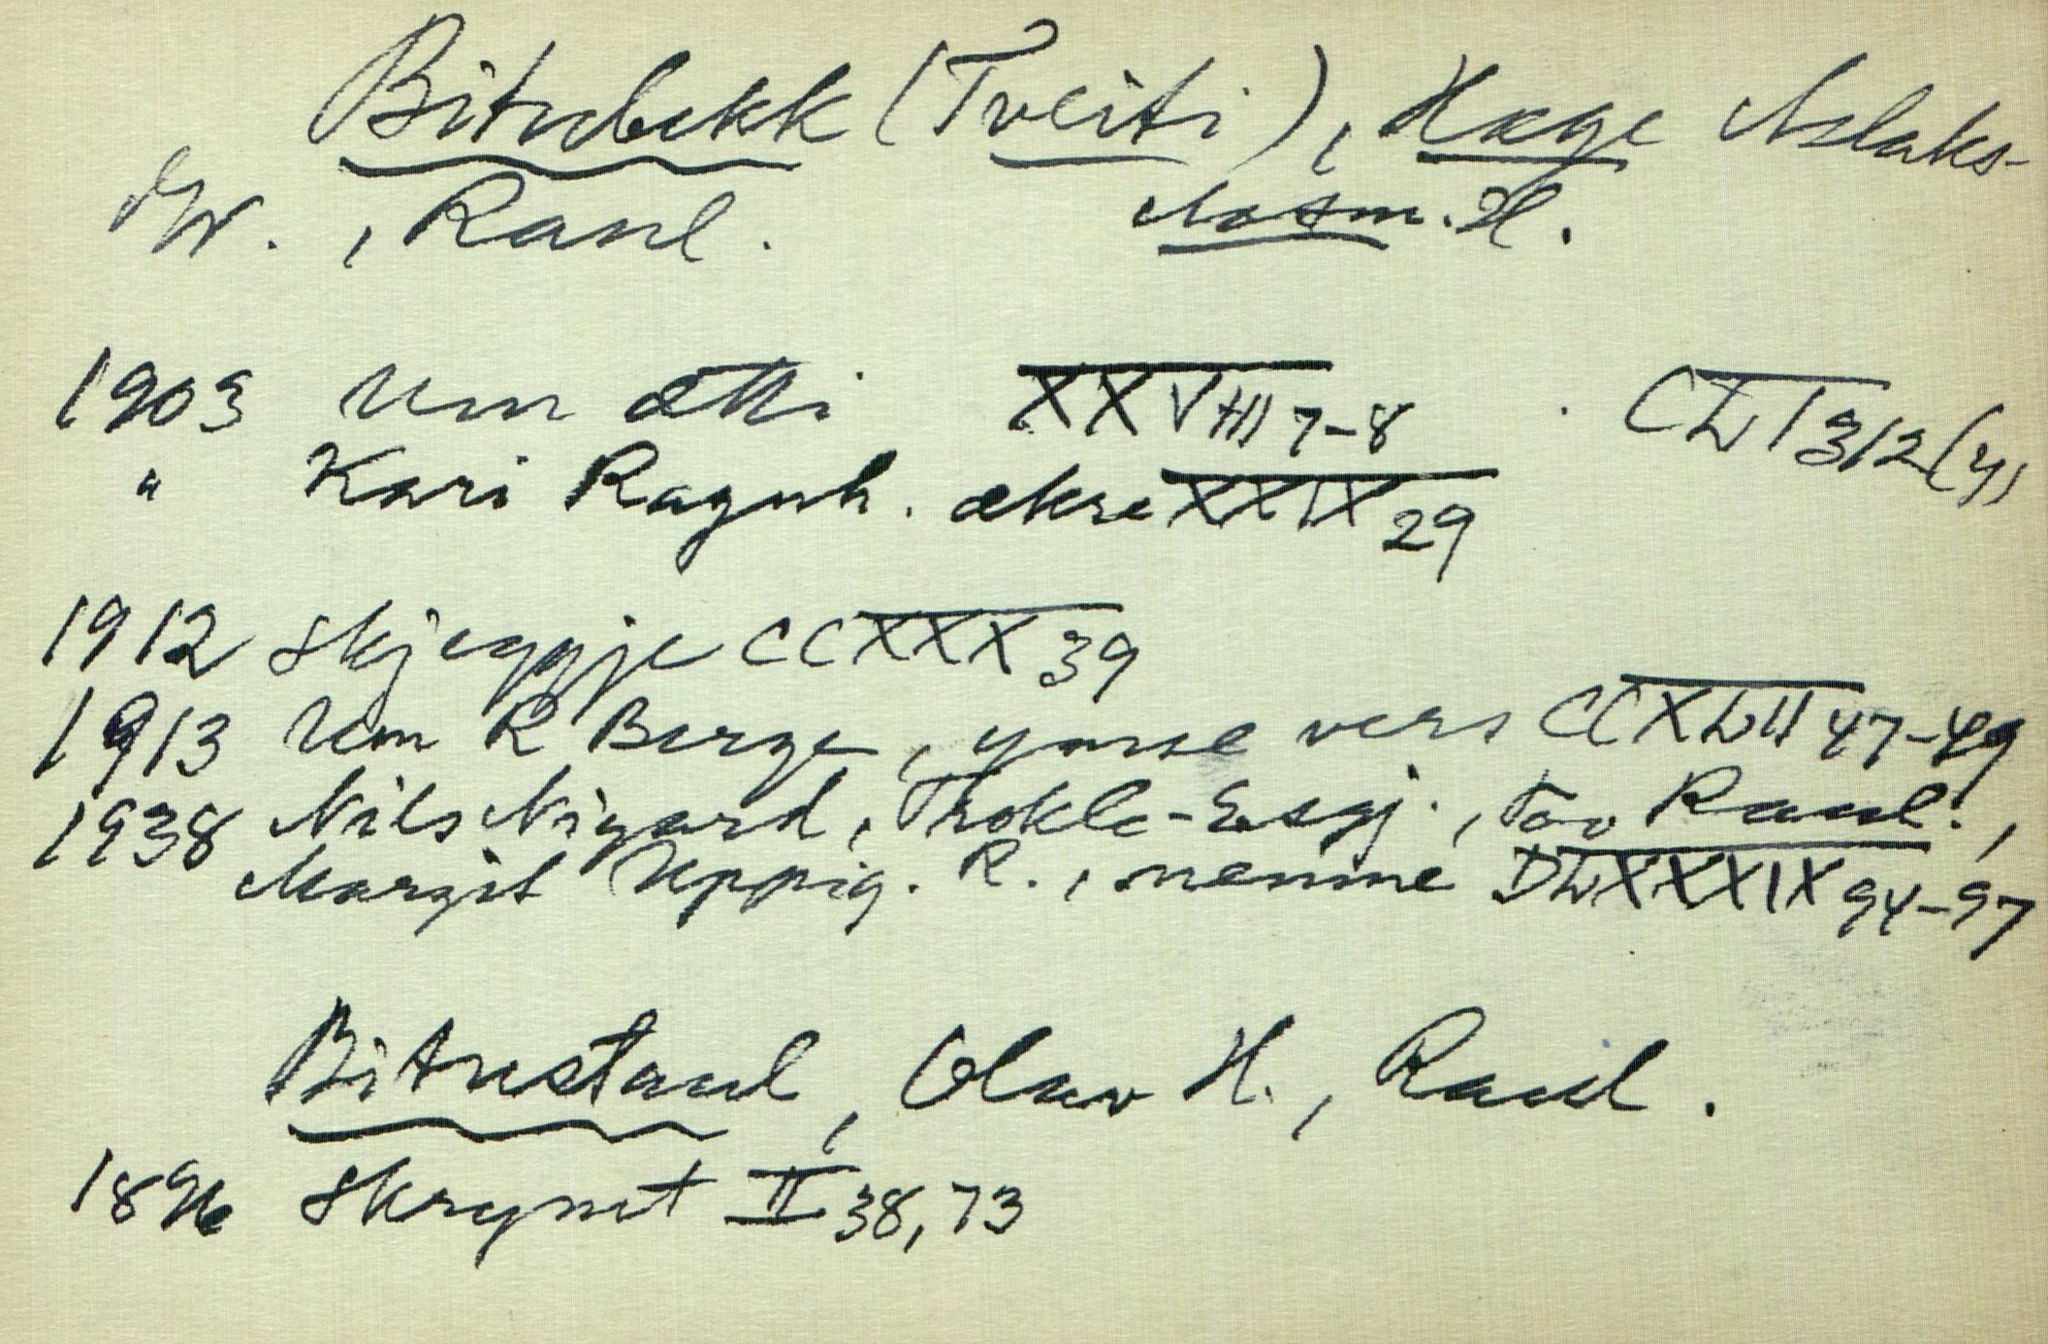 Bitubekk (Tveiti), Hæge Aslaks-
Raul.
1903 Um ætti XXVIII 7-8 CLI 312 (4)
" Kari Ragnh. økse XXIX 29
1912 Skjeggje CCXXX 39
1913 Um R Berge, ymse vers CCXLII 47-49
1938 Nils Nigard, Tov Raul.,
Margit Uppig. R., nemne DLXXXIX 94-97
Bitustaul, Olav H., Raul.
1896 Skrymt II 38, 73